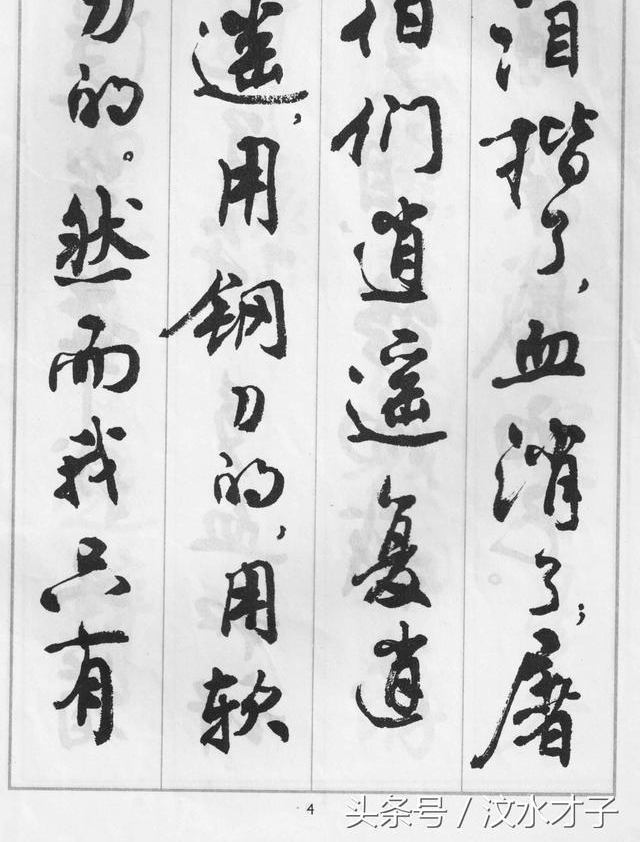 泪揩了，血消了；屠
伯们逍遥复逍
遥，用钢刀的，用软
刀的。然而我只有
4
头条号 / 汶水才子